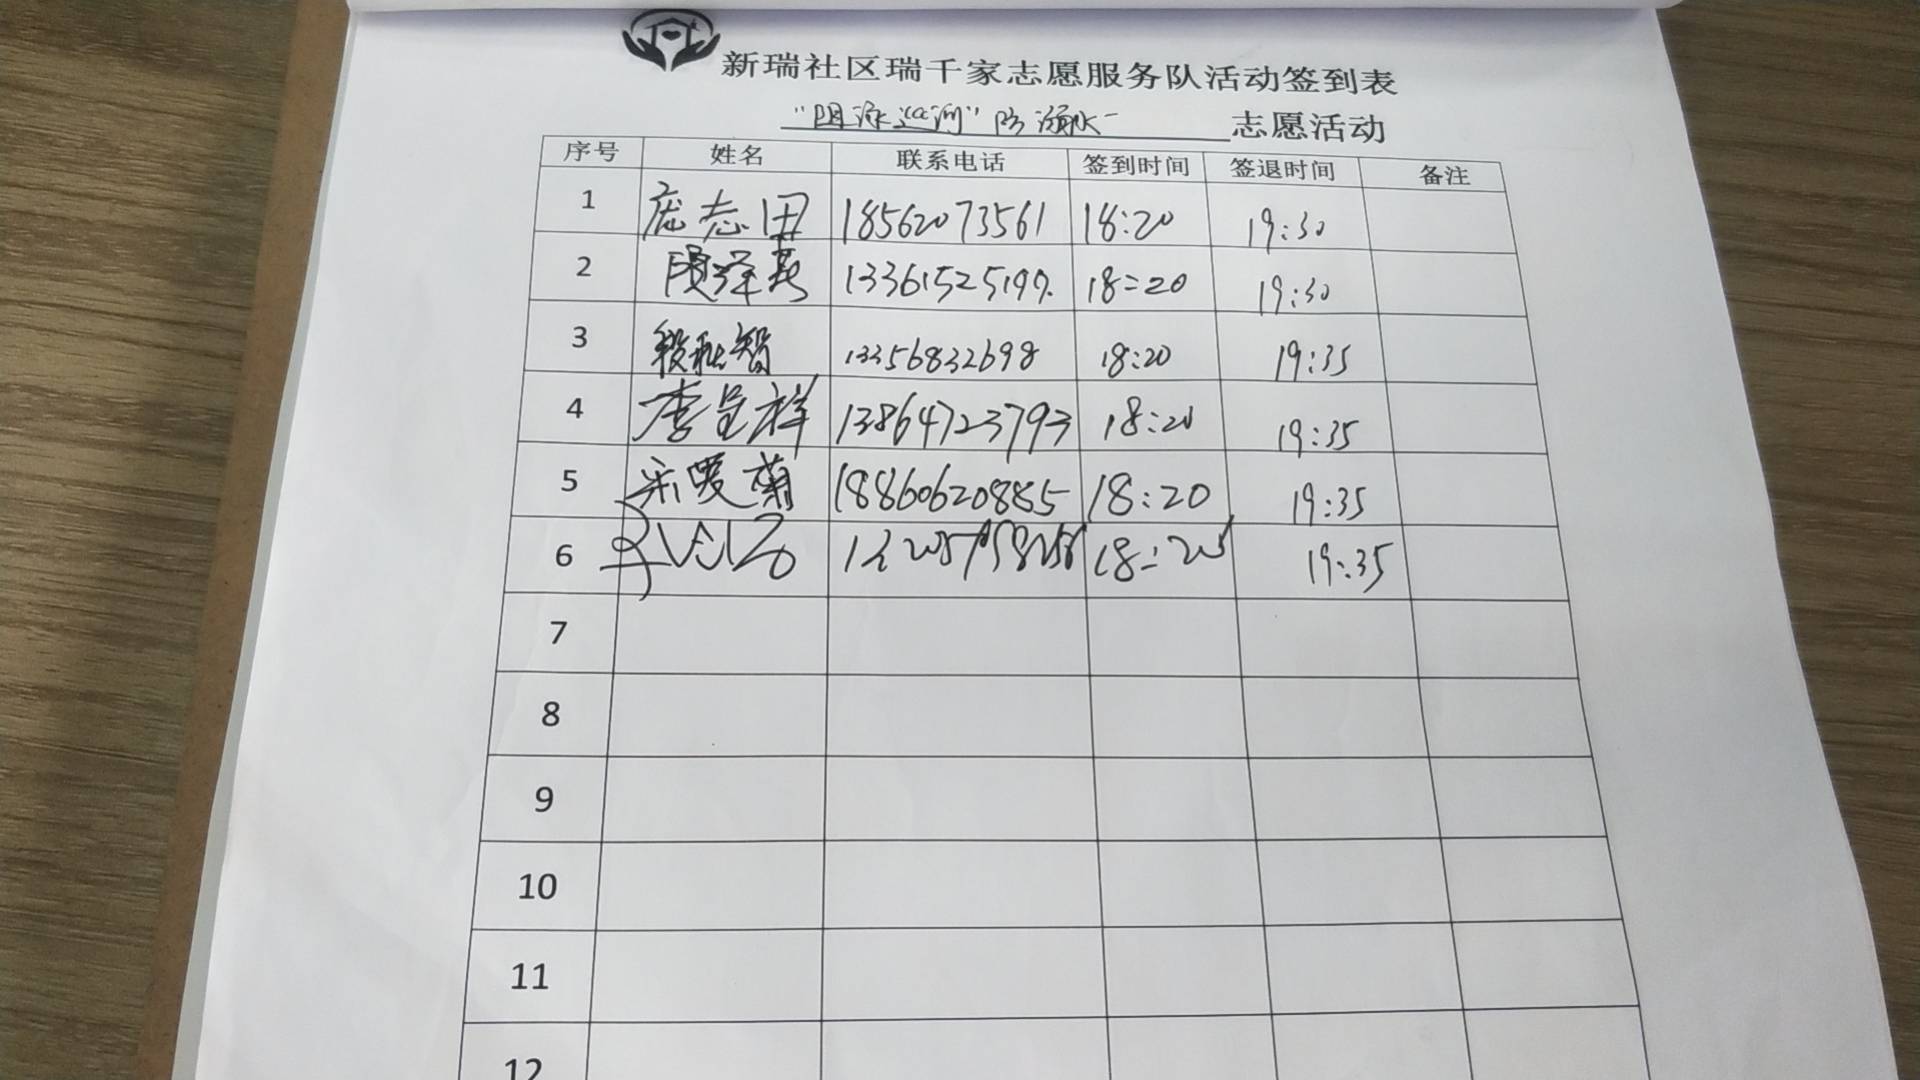 新瑞社区瑞千家志愿服务队活动签到表
防溺水 志愿活动
序号 姓名 联系电话 签到时间 签退时间 备注
1 庞志田 18562073561 18:20 19:30
2 13361525199. 18:20 19:30
3 智 13356832698 18:20 19:35
4 李呈祥 13864723793 18:20 19:35
5 宋爱菊 18860620885 18:20 19:35
6 18:20 19:35
7
8
9
10
11
12